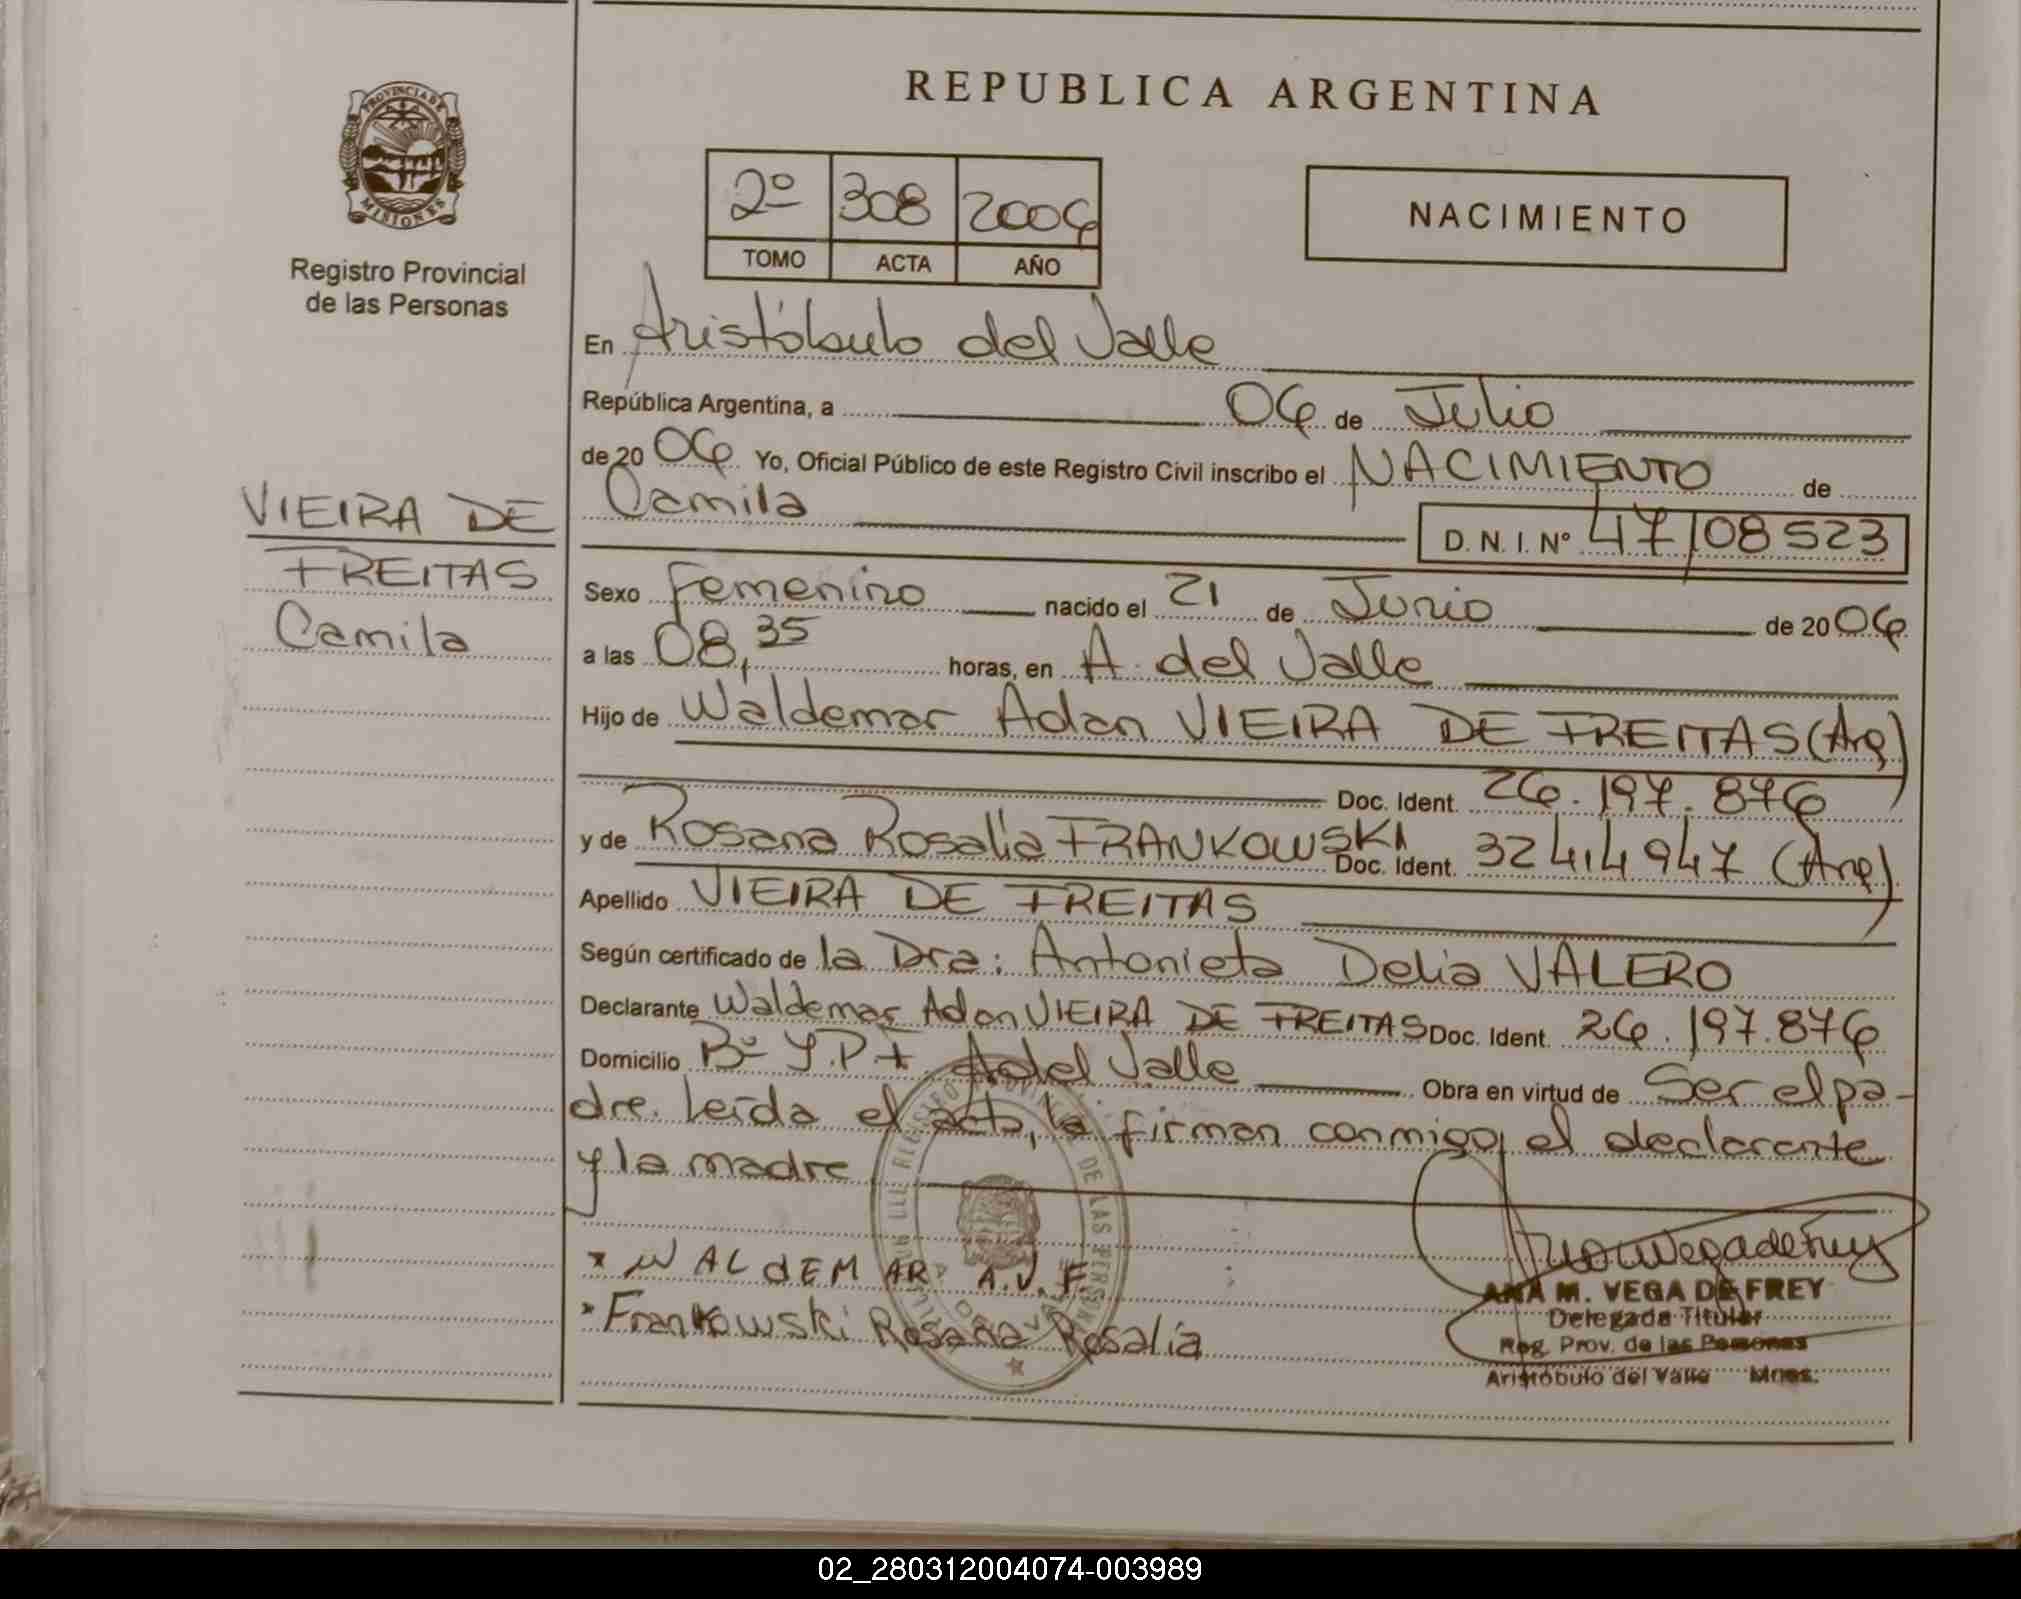 REPUBLICA ARGENTINA
PROVINCIA DE
MISIONES
Registro Provincial
de las Personas
2º 308 2006
TOMO ACTA AÑO
NACIMIENTO
En Aristóbulo del Valle
República Argentina, a 06 de Julio
de 2006 Yo, Oficial Público de este Registro Civil inscribo el NACIMIENTO de
Camila
D. N. I. Nº 47108523
VIEIRA DE
FREITAS
Camila
Sexo Femenino nacido el 21 de Junio de 2006
a las 08,35 horas, en A. del Valle
Hijo de Waldemar Adan VIEIRA DE FREITAS (Arg)
Doc. Ident. 26.197.876
y de Rosana Rosalia FRANKOWSKI Doc. Ident. 32414947 (Arg)
Apellido VIEIRA DE FREITAS
Según certificado de la Dra: Antonieta Delia VALERO
Declarante Waldemar Adan VIEIRA DE FREITAS Doc. Ident. 26.197.876
Domicilio Bº Y.P.F A del Valle Obra en virtud de Ser el pa-
dre. Leída el acta, la firman conmigo, el declarante
y la madre
* WALdEMAR A.V.F.
* Frankowski Rosana Rosalia
ANA M. VEGA DE FREY
Delegada Titular
Reg. Prov. de las Personas
Aristóbulo del Valle Mnes.
02_280312004074-003989